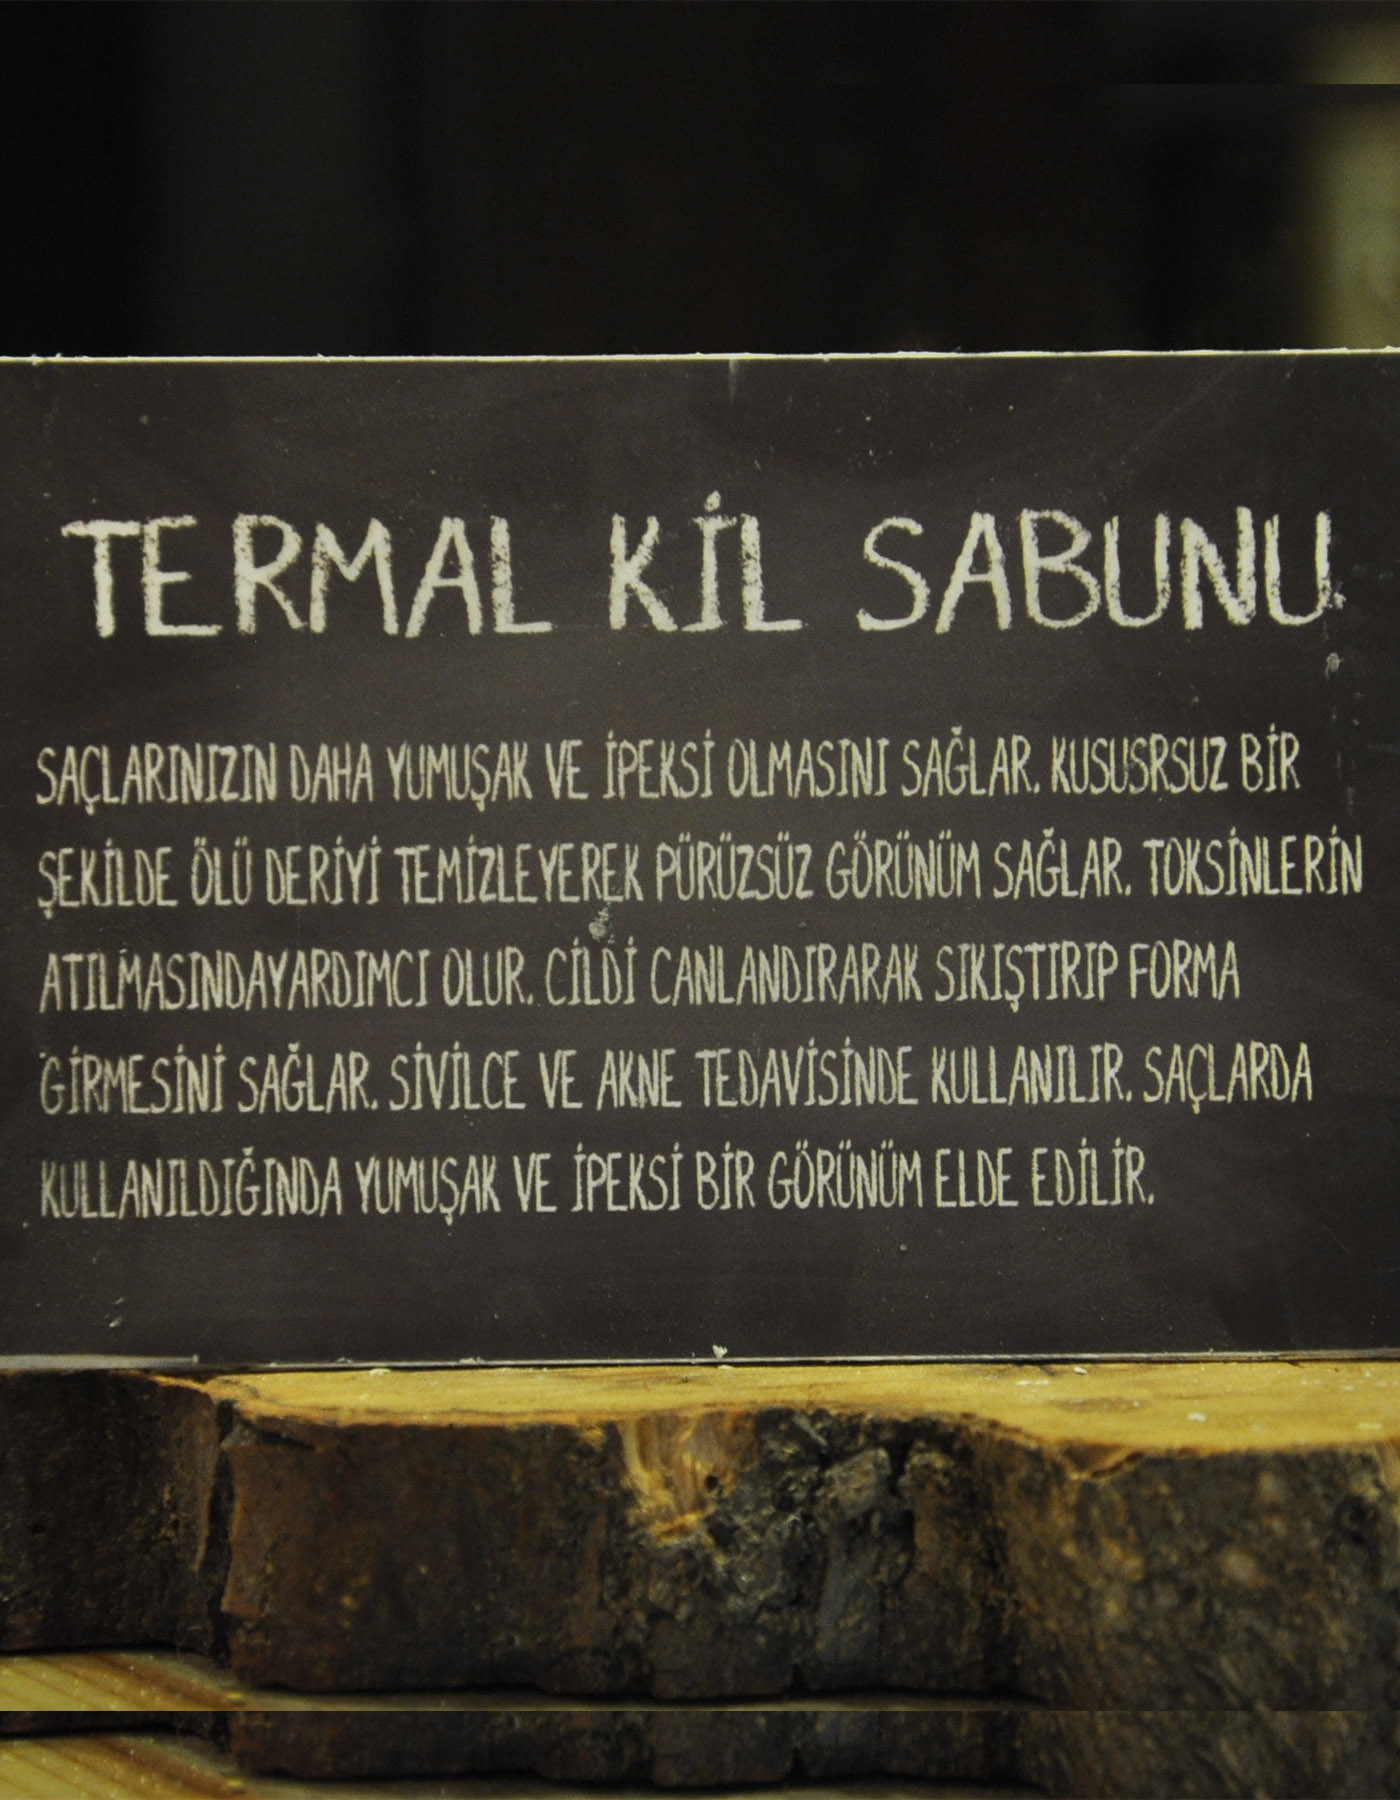 TERMAL KİL SABUNU
SAÇLARINIZIN DAHA YUMUŞAK VE İPEKSİ OLMASINI SAĞLAR. KUSUSRSUZ BİR
ŞEKİLDE ÖLÜ DERİYİ TEMİZLEYEREK PÜRÜZSÜZ GÖRÜNÜM SAĞLAR. TOKSİNLERİN
ATILMASINDAYARDIMCI OLUR. CİLDİ CANLANDIRARAK SIKIŞTIRIP FORMA
GİRMESİNİ SAĞLAR. SİVİLCE VE AKNE TEDAVİSİNDE KULLANILIR. SAÇLARDA
KULLANILDIĞINDA YUMUŞAK VE İPEKSİ BİR GÖRÜNÜM ELDE EDİLİR.